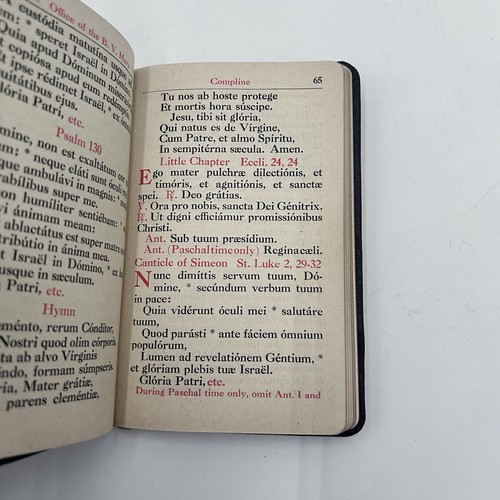 Office of the B. V. Mary
A custódia matutína usque
* speret Israël in Dómino
Quia apud Dóminum
et copiósa apud eum redémptio
Et ipse rédimet Israël, * ex
iquitátibus ejus.
Glória Patri, etc.
Psalm 130
non est exaltátum cor
* neque eláti sunt óculi
que ambulávi in magnis: *
rabílibus super me.
non humíliter sentiébam: *
vi ánimam meam:
ablactátus est super matre
tribútio in ánima mea.
et Israël in Dómino, *
usque in sæculum.
Patri, etc.
Hymn
Meménto, rerum Cónditor,
Nostri quod olim córporis
ta ab alvo Vírginis
formam súmpseris.
María, Mater grátiæ,
parens cleméntiæ,
Compline 65
Tu nos ab hoste protege
Et mortis hora súscipe.
Jesu, tibi sit glória,
Qui natus es de Vírgine,
Cum Patre, et almo Spíritu,
In sempitérna sæcula. Amen.
Little Chapter Eccli. 24, 24
Ego mater pulchræ dilectiónis, et
timóris, et agnitiónis, et sanctæ
spei. ℟. Deo grátias.
℣. Ora pro nobis, sancta Dei Génitrix.
℟. Ut digni efficiámur promissiónibus
Christi.
Ant. Sub tuum præsidium.
Ant. (Paschal time only) Regína cæli.
Canticle of Simeon St. Luke 2, 29-32
Nunc dimíttis servum tuum, Dó-
mine, * secúndum verbum tuum
in pace:
Quia vidérunt óculi mei * salutáre
tuum,
Quod parásti * ante fáciem ómnium
populórum,
Lumen ad revelatiónem Géntium, *
et glóriam plebis tuæ Israël.
Glória Patri, etc.
During Paschal time only, omit Ant. I and